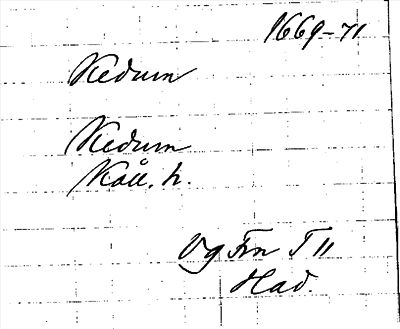 1669-71
Kedum
Kedum
Kåll. h.
Vg Frn T II
Had.